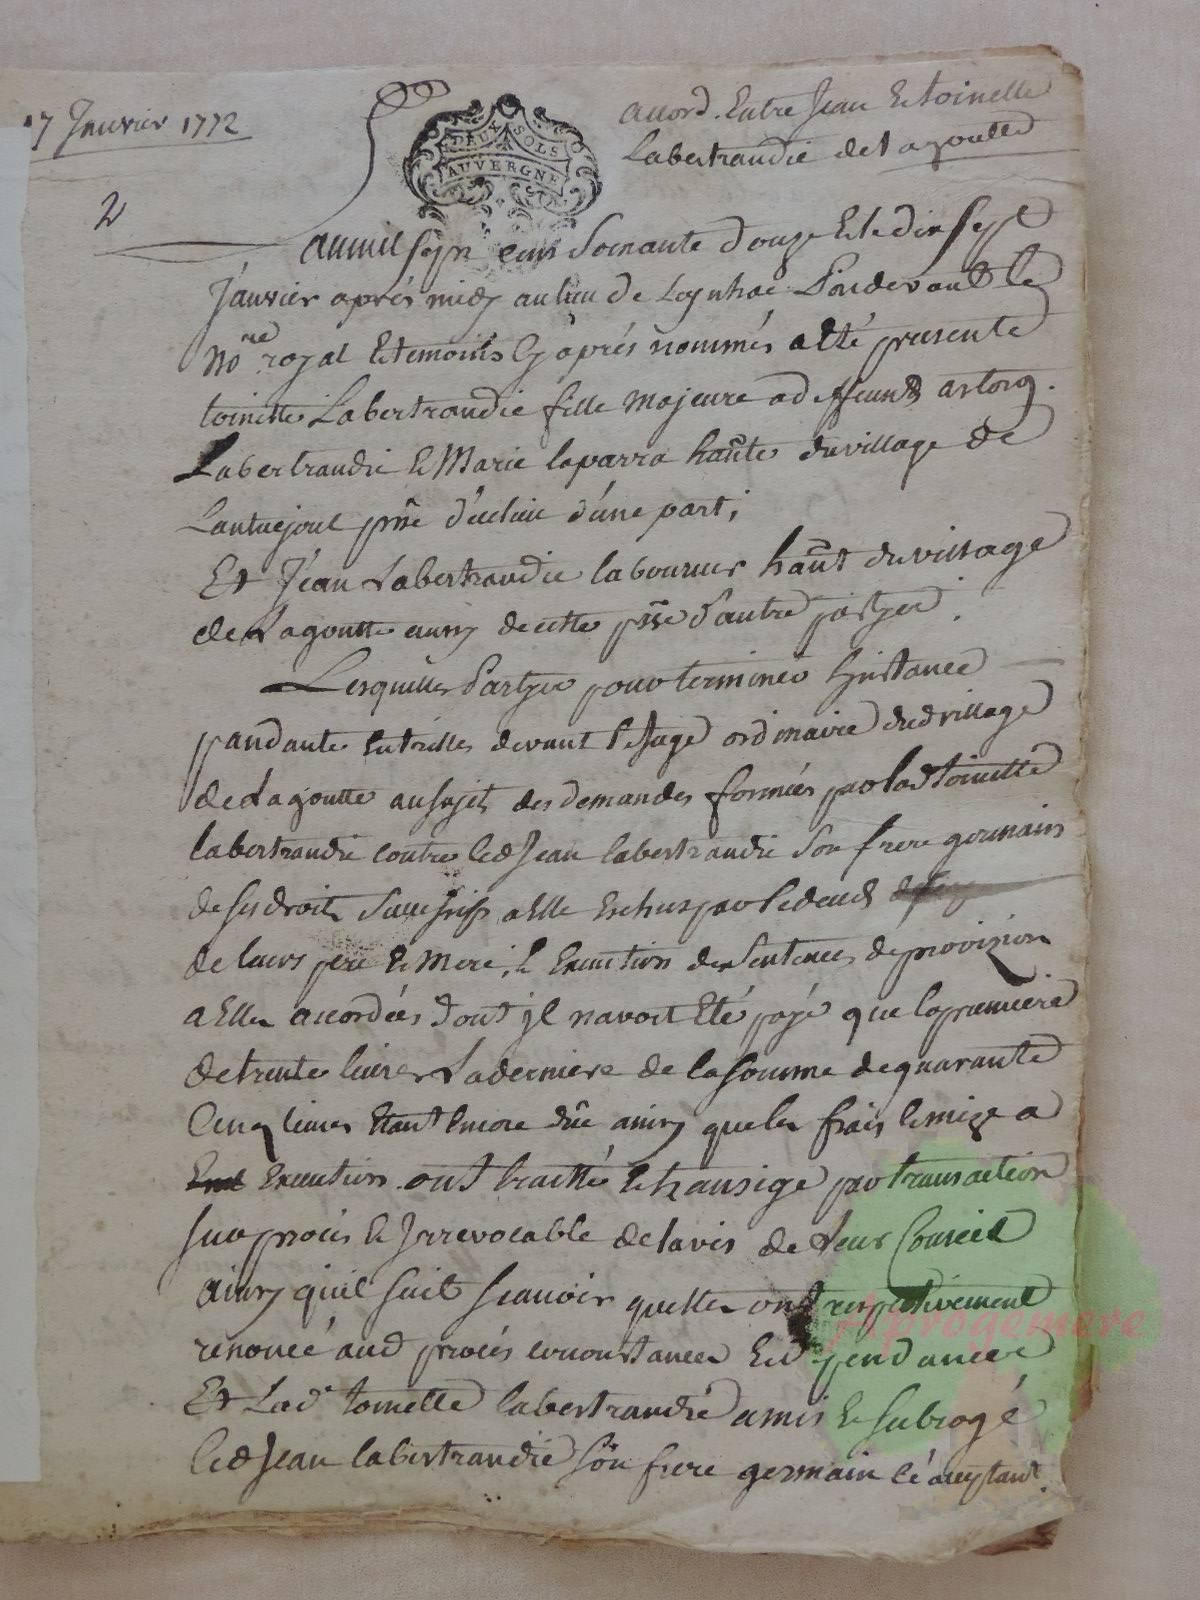 17 Janvier 1772
accord Entre Jean Et toinette
Labertrandie de Lagoutte
DEUX SOLS
AUVERGNE
2
a mil sept cens soixante douze Et le dix sept
Janvier aprés midy au lieu de Leynhac Pardevant le
No.re royal Et temoins Cy aprés nommés a Eté presente
toinette Labertrandie fille majeure a deffeunts astorg
Labertrandie & Marie laparra hãnte du village de
Lantuejoul pñse d'une part;
Et Jean Labertrandie laboureur hãnt du village
de Lagoutte aussy de cette pñse d'autre partie.
Lesquelles Parties pour terminer Linstance
pandante Entrelles devant le Juge ordinaire dud village
de Lagoutte au sujet des demandes formées par lad toinette
labertrandie contre led Jean labertrandie son frere germain
de ses droits successifs a Elle Eschus par le deceds
de leurs pere & mere, & Execution des sentences de provision
a Elle accordées dont jl navoit Eté payé que la premiere
de trente livres La derniere de la somme de quarante
Cinq livres Etant Encore düe ainsy que les frais & mize a
Execution ont traitté & transigé par transaction
sur procés & Jrrevocable de lavis de Leur Conseil
ainsy quil suit scavoir quelles ont respectivement
renoncé aud procés circonstances Et dépendances
Et Lad.e toinette labertrandie a mis & subrogé
led Jean labertrandie son frere germain cé acceptant
Aprogemere